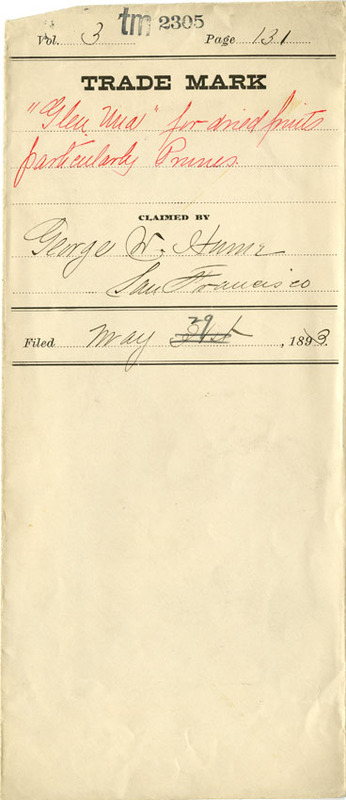 tm 2305
Vol. 3 Page 131
TRADE MARK
"Glen Una" for dried fruits
particularly Prunes
CLAIMED BY
George W. Hume
San Francisco
Filed May 29 31st, 1893.